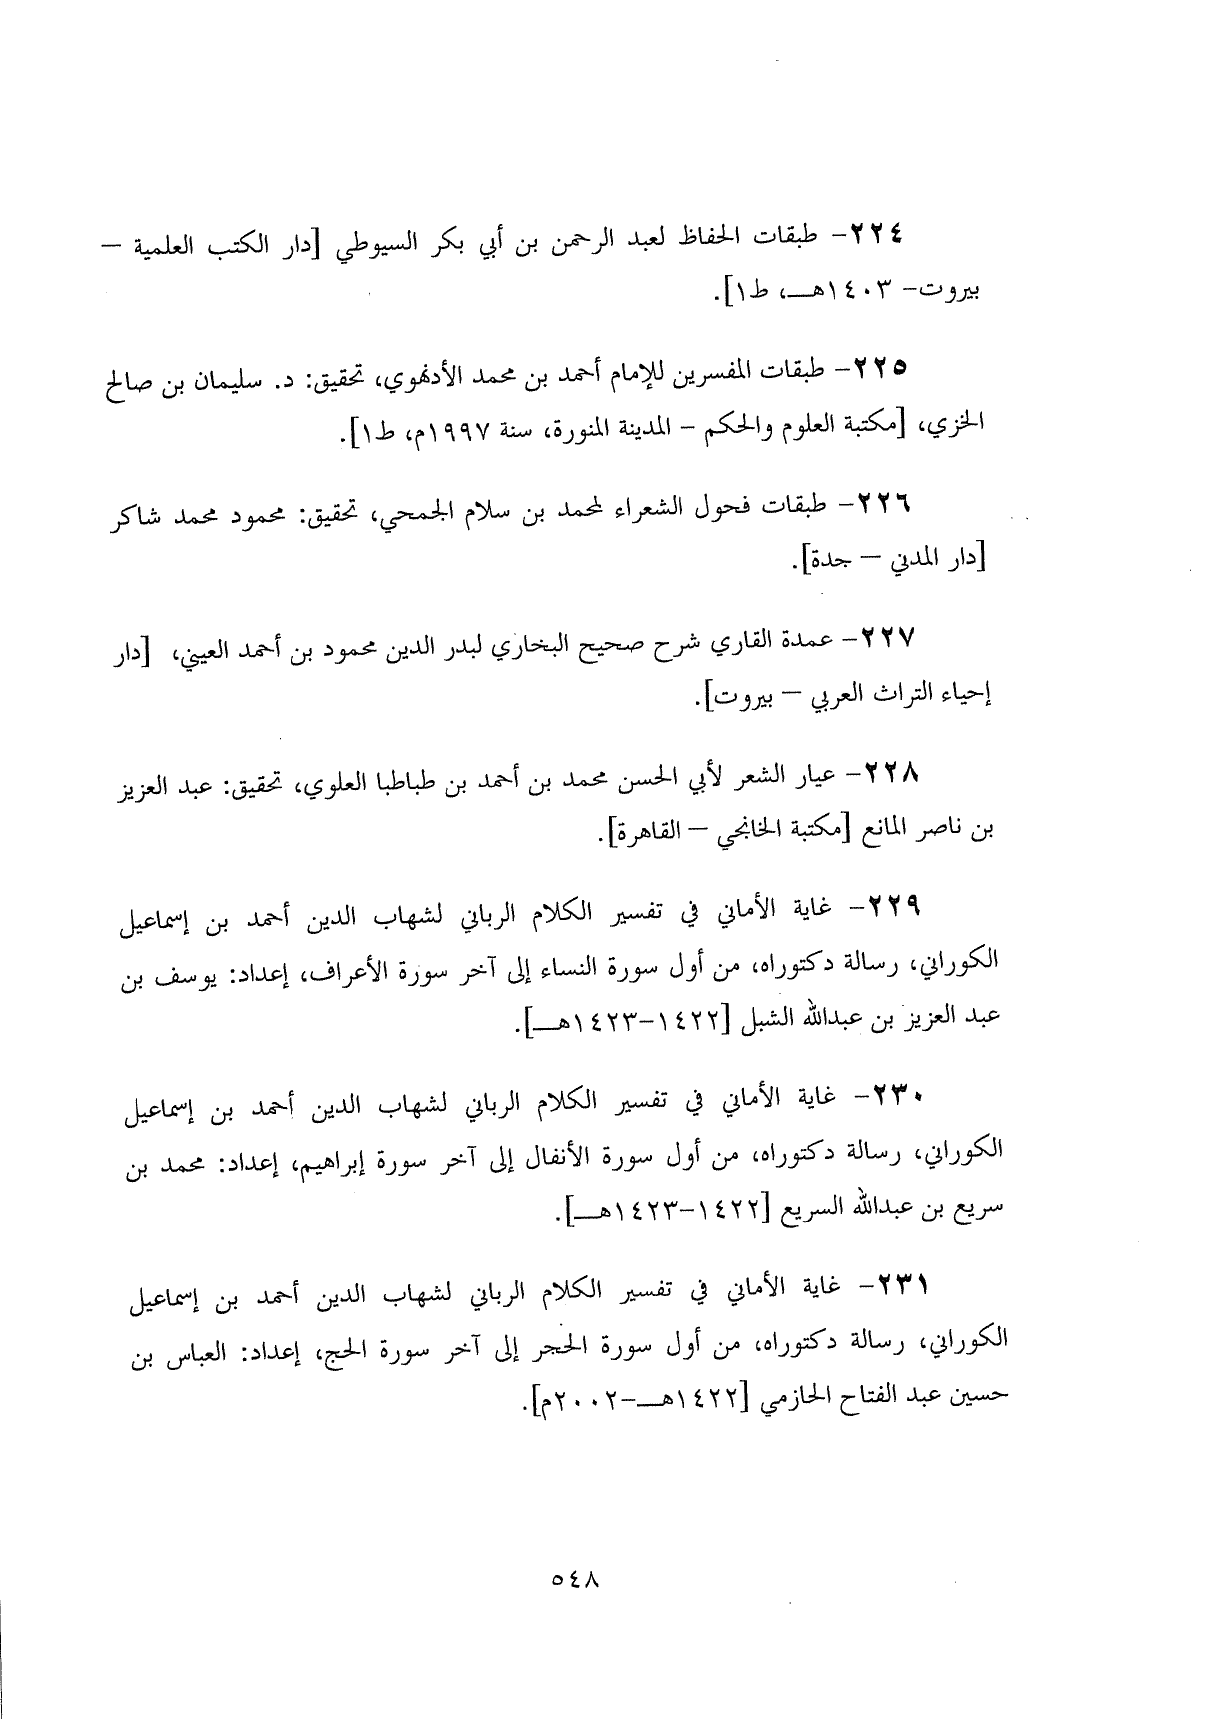 ٢٢٤- طبقات الحفاظ لعبد الرحمن بن أبي بكر السيوطي [دار الكتب العلمية –
بيروت- ١٤٠٣هـ، ط١].
٢٢٥- طبقات المفسرين للإمام أحمد بن محمد الأدنهوي، تحقيق: د. سليمان بن صالح
الخزي، [مكتبة العلوم والحكم – المدينة المنورة، سنة ١٩٩٧م، ط١].
٢٢٦- طبقات فحول الشعراء لمحمد بن سلام الجمحي، تحقيق: محمود محمد شاكر
[دار المدني – جدة].
٢٢٧- عمدة القاري شرح صحيح البخاري لبدر الدين محمود بن أحمد العيني، [دار
إحياء التراث العربي – بيروت].
٢٢٨- عيار الشعر لأبي الحسن محمد بن أحمد بن طباطبا العلوي، تحقيق: عبد العزيز
بن ناصر المانع [مكتبة الخانجي – القاهرة].
٢٢٩- غاية الأماني في تفسير الكلام الرباني لشهاب الدين أحمد بن إسماعيل
الكوراني، رسالة دكتوراه، من أول سورة النساء إلى آخر سورة الأعراف، إعداد: يوسف بن
عبد العزيز بن عبدالله الشبل [١٤٢٢-١٤٢٣هـ].
٢٣٠- غاية الأماني في تفسير الكلام الرباني لشهاب الدين أحمد بن إسماعيل
الكوراني، رسالة دكتوراه، من أول سورة الأنفال إلى آخر سورة إبراهيم، إعداد: محمد بن
سريع بن عبدالله السريع [١٤٢٢-١٤٢٣هـ].
٢٣١- غاية الأماني في تفسير الكلام الرباني لشهاب الدين أحمد بن إسماعيل
الكوراني، رسالة دكتوراه، من أول سورة الحجر إلى آخر سورة الحج، إعداد: العباس بن
حسين عبد الفتاح الحازمي [١٤٢٢هـ-٢٠٠٢م].
٥٤٨